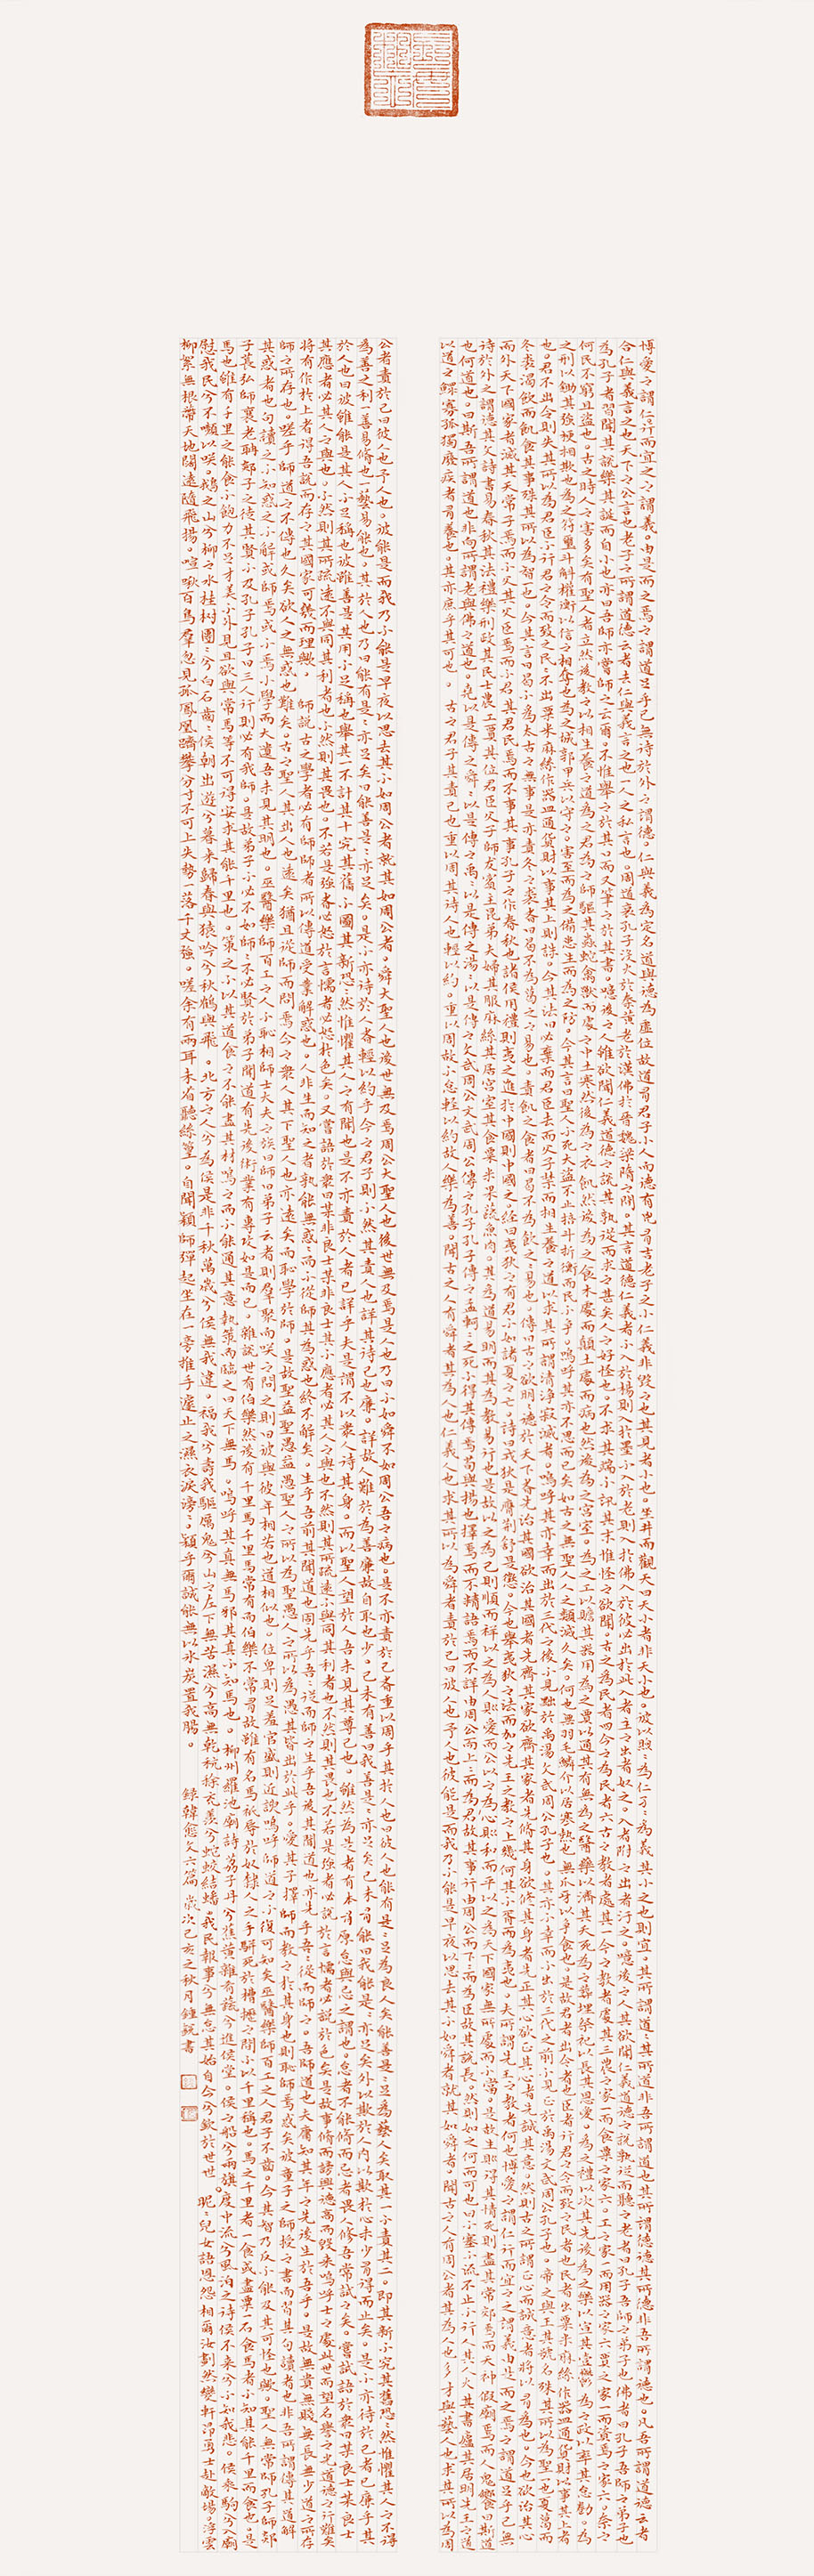 博愛之謂仁行而宜之之謂義。由是而之焉之謂道足乎己無待於外之謂德。仁與義為定名道與德為虛位故道有君子小人而德有凶有吉老子之小仁義非毀之也其見者小也。坐井而觀天曰天小者非天小也。彼以煦煦為仁孑孑為義其小之也則宜。其所謂道道其所道非吾所謂道也其所謂德德其所德非吾所謂德也。凡吾所謂道德云者
合仁與義言之也天下之公言也老子之所謂道德云者去仁與義言之也一人之私言也。周道衰孔子沒火於秦黃老於漢佛於晉魏梁隋之間。其言道德仁義者不入於楊則入於墨不入於老則入於佛入於彼必出於此入者主之出者奴之。入者附之出者汙之。噫後之人其欲聞仁義道德之說孰從而聽之老者曰孔子吾師之弟子也佛者曰孔子吾師之弟子也
為孔子者習聞其說樂其誕而自小也亦曰吾師亦嘗師之云爾。不惟舉之於其口而又筆之於其書。噫後之人雖欲聞仁義道德之說其孰從而求之甚矣人之好怪也。不求其端不訊其末惟怪之欲聞。古之為民者四今之為民者六古之教者處其一今之教者處其三農之家一而食粟之家六。工之家一而用器之家六賈之家一而資焉之家六。奈之
何民不窮且盜也。古之時人之害多矣有聖人者立然後教之以相生養之道為之君為之師驅其蟲蛇禽獸而處之中土寒然後為之衣飢然後為之食木處而顛土處而病也然後為之宮室。為之工以贍其器用為之賈以通其有無為之醫藥以濟其夭死為之葬埋祭祀以長其恩愛。為之禮以次其先後為之樂以宣其壹鬱為之政以率其怠勌。為
之刑以鋤其強梗相欺也為之符璽斗斛權衡以信之相奪也為之城郭甲兵以守之。害至而為之備患生而為之防。今其言曰聖人不死大盜不止掊斗折衡而民不爭。嗚呼其亦不思而已矣如古之無聖人人之類滅久矣。何也無羽毛鱗介以居寒熱也無爪牙以爭食也。是故君者出令者也臣者行君之令而致之民者也民者出粟米麻絲作器皿通貨財以事其上者
也。君不出令則失其所以為君臣不行君之令而致之民民不出粟米麻絲作器皿通貨財以事其上則誅。今其法曰必棄而君臣去而父子禁而相生養之道以求其所謂清淨寂滅者。嗚呼其亦幸而出於三代之後不見黜於禹湯文武周公孔子也。其亦不幸而不出於三代之前不見正於禹湯文武周公孔子也。帝之與王其號名殊其所以為聖一也夏葛而
冬裘渴飲而飢食其事殊其所以為智一也。今其言曰曷不為太古之無事是亦責冬之裘者曰曷不為葛之之易也。責飢之食者曰曷不為飲之之易也。傳曰古之欲明明德於天下者先治其國欲治其國者先齊其家欲齊其家者先修其身欲修其身者先正其心欲正其心者先誠其意。然則古之所謂正心而誠意者將以有為也。今也欲治其心
而外天下國家者滅其天常子焉而不父其父臣焉而不君其君民焉而不事其事孔子之作春秋也諸侯用禮則夷之進於中國則中國之。經曰夷狄之有君不如諸夏之亡。詩曰戎狄是膺荊舒是懲。今也舉夷狄之法而加之先王之教之上幾何其不胥而為夷也。夫所謂先王之教者何也博愛之謂仁行而宜之之謂義由是而之焉之謂道足乎己無
待於外之謂德其文詩書易春秋其法禮樂刑政其民士農工賈其位君臣父子師友賓主昆弟夫婦其服麻絲其居宮室其食粟米果蔬魚肉。其為道易明而其為教易行也是故以之為己則順而祥以之為人則愛而公以之為心則和而平以之為天下國家無所處而不當。是故生則得其情死則盡其常郊焉而天神假廟焉而人鬼饗曰斯道
也何道也。曰斯吾所謂道也非向所謂老與佛之道也。堯以是傳之舜舜以是傳之禹禹以是傳之湯湯以是傳之文武周公文武周公傳之孔子孔子傳之孟軻軻之死不得其傳焉荀與揚也擇焉而不精語焉而不詳由周公而上上而為君故其事行由周公而下下而為臣故其說長。然則如之何而可也曰不塞不流不止不行人其人火其書廬其居明先王之道
以道之鰥寡孤獨廢疾者有養也。其亦庶乎其可也。古之君子其責己也重以周其待人也輕以約。重以周故不怠輕以約故人樂為善。聞古之人有舜者其為人也仁義人也求其所以為舜者責於己曰彼人也予人也彼能是而我乃不能是早夜以思去其不如舜者就其如舜者。聞古之人有周公者其為人也多才與藝人也求其所以為周
公者責於己曰彼人也予人也。彼能是而我乃不能是早夜以思去其不如周公者就其如周公者。舜大聖人也後世無及焉周公大聖人也後世無及焉是人也乃曰不如舜不如周公吾之病也。是不亦責於己者重以周乎其於人也曰彼人也能有是是足為良人矣能善是是足為藝人矣取其一不責其二。即其新不究其舊恐恐然惟懼其人之不得
為善之利一善易脩也一藝易能也。其於人也乃曰能有是是亦足矣曰能善是是亦足矣。是不亦待於人者輕以約乎今之君子則不然其責人也詳其待己也廉。詳故人難於為善廉故自取也少。己未有善曰我善是是亦足矣己未有能曰我能是是亦足矣外以欺於人內以欺於心未少有得而止矣。是不亦待於己者已廉乎其
於人也曰彼雖能是其人不足稱也彼雖善是其用不足稱也舉其一不計其十究其舊不圖其新恐恐然惟懼其人之有聞也是不亦責於人者已詳乎夫是謂不以眾人待其身。而以聖人望於人吾未見其尊己也。雖然為是者有本有原怠與忌之謂也。怠者不能脩而忌者畏人修吾常試之矣。嘗試語於眾曰某良士某良士
其應者必其人之與也。不然則其所疏遠不與同其利者也不然則其畏也。不若是強者必怒於言懦者必怒於色矣。又嘗語於眾曰某非良士某非良士其不應者必其人之與也不然則其所疏遠不與同其利者也不然則其畏也不若是強者必說於言懦者必說於色矣是故事脩而謗興德高而毀來嗚呼士之處此世而望名譽之光道德之行難矣
將有作於上者得吾說而存之其國家可幾而理歟。師說古之學者必有師師者所以傳道受業解惑也。人非生而知之者孰能無惑惑而不從師其為惑也終不解矣。生乎吾前其聞道也固先乎吾吾從而師之生乎吾後其聞道也亦先乎吾吾從而師之。吾師道也夫庸知其年之先後生於吾乎。是故無貴無賤無長無少道之所存
師之所存也。嗟乎師道之不傳也久矣欲人之無惑也難矣。古之聖人其出人也遠矣猶且從師而問焉今之眾人其下聖人也亦遠矣而恥學於師。是故聖益聖愚益愚聖人之所以為聖愚人之所以為愚其皆出於此乎。愛其子擇師而教之於其身也則恥師焉惑矣彼童子之師授之書而習其句讀者也非吾所謂傳其道解
其惑者也句讀之不知惑之不解或師焉或不焉小學而大遺吾未見其明也。巫醫樂師百工之人不恥相師士大夫之族曰師曰弟子云者則羣聚而笑之問之則曰彼與彼年相若也道相似也。位卑則足羞官盛則近諛嗚呼師道之不復可知矣巫醫樂師百工之人君子不齒。今其智乃反不能及其可怪也歟。聖人無常師孔子師郯
子萇弘師襄老聃郯子之徒其賢不及孔子孔子曰三人行則必有我師。是故弟子不必不如師師不必賢於弟子聞道有先後術業有專攻如是而已。雜說世有伯樂然後有千里馬千里馬常有而伯樂不常有故雖有名馬祇辱於奴隸人之手駢死於槽櫪之間不以千里稱也。馬之千里者一食或盡粟一石食馬者不知其能千里而食也。是
馬也雖有千里之能食不飽力不足才美不外見且欲與常馬等不可得安求其能千里也。策之不以其道食之不能盡其材鳴之而不能通其意執策而臨之曰天下無馬。嗚呼其真無馬邪其真不知馬也。柳州羅池廟詩荔子丹兮蕉黃雜肴蔬兮進侯堂。侯之船兮兩旗度中流兮風泊之待侯不來兮不知我悲。侯乘駒兮入廟
慰我民兮不嚬以笑。鵝之山兮柳之水桂树團團兮白石齒齒侯朝出遊兮暮來歸春與猿吟兮秋鶴與飛。北方之人兮為侯是非千秋萬歲兮侯無我違。福我兮壽我驅厲鬼兮山之左下無苦濕兮高無乾秔稌充羨兮蛇蛟結蟠。我民報事兮無怠其始自今兮欽於世世。昵昵兒女語恩怨相爾汝劃然變軒昂勇士赴敵場。浮雲
柳絮無根蒂天地闊遠隨飛揚。喧啾百鳥羣忽見孤鳳凰躋攀分寸不可上失勢一落千丈強。嗟余有兩耳未省聽絲篁。自聞穎師彈起坐在一旁推手遽止之濕衣淚滂滂穎乎爾誠能無以冰炭置我腸。 錄韓愈文六篇 歲次己亥之秋月鍾銳書